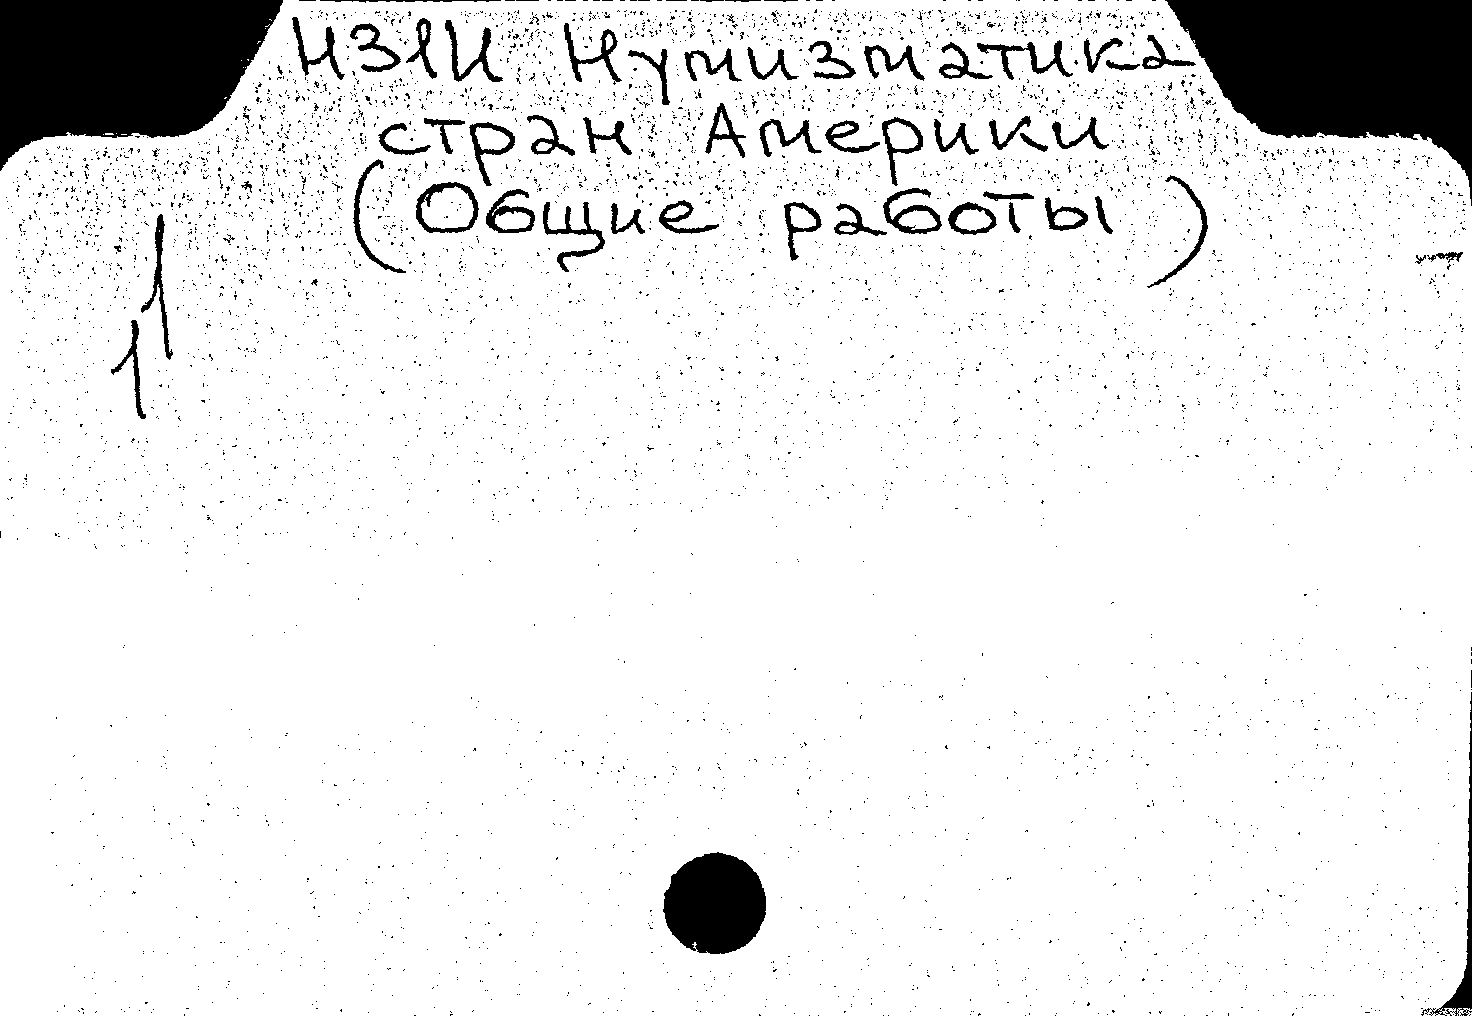 Н31И Нумизматика
стран Америки
(Общие работы)
1
1